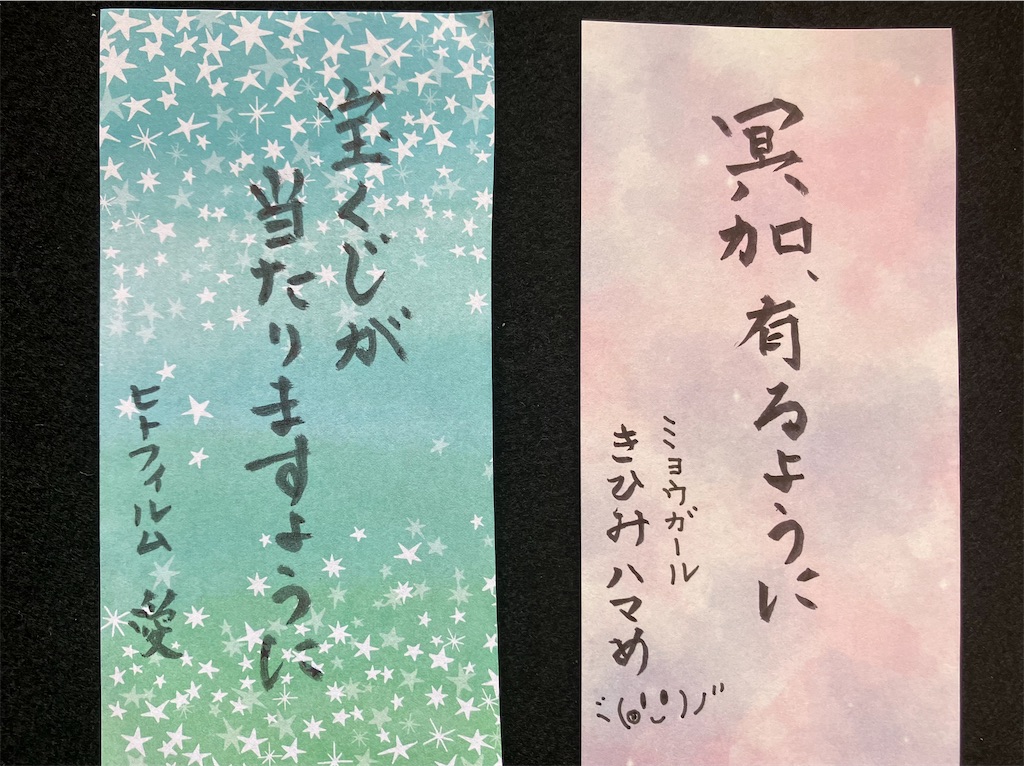 宝くじが
当たりますように
ヒトフィルム 愛
冥加、有るように
ミョウガール
きひみハマめ